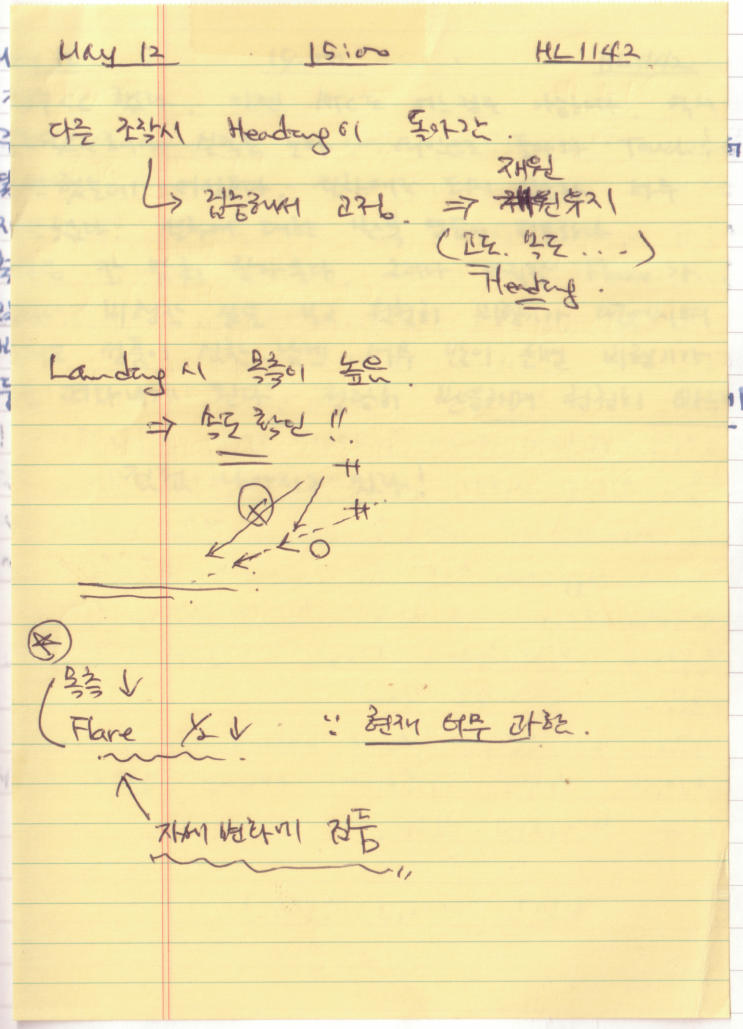 May 12 15:00 HL1142
다른 조작시 Heading이 돌아감.
↳ 집중해서 교정. ⇒ 재원유지
재원
(고도. 속도 ....)
Heading.
Landing시 목측이 높음.
⇒ 속도 확인 !!
목측 ↓
Flare 1/2 ↓ ∵ 현재 너무 과함.
자세변화에 집중